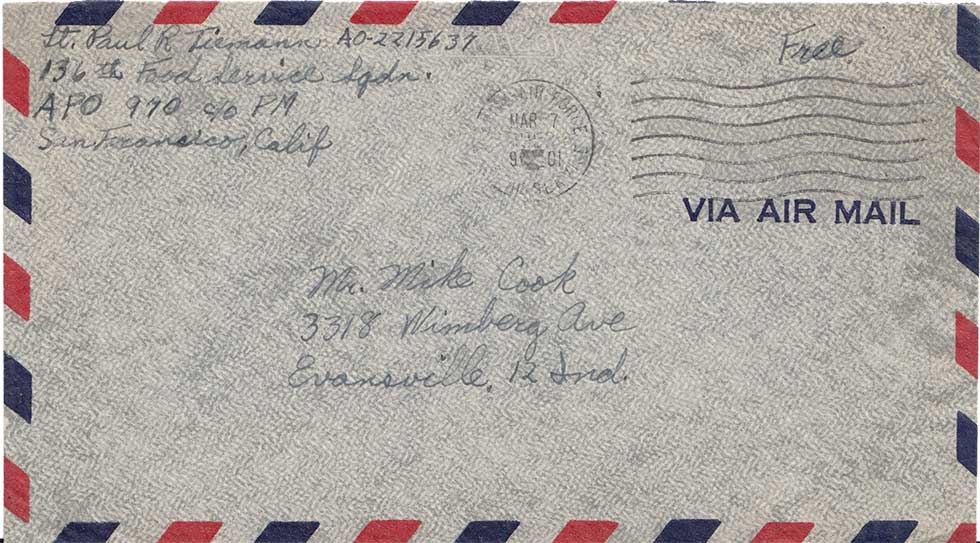 Lt. Paul R Tiemann AO-2215637
136th Food Service Sqdn.
APO 970 c/o PM
San Francisco, Calif
Free
AIR FORCE
MAR 7
VIA AIR MAIL
Mr. Mike Cook
3318 Wimberg Ave
Evansville, 12 Ind.